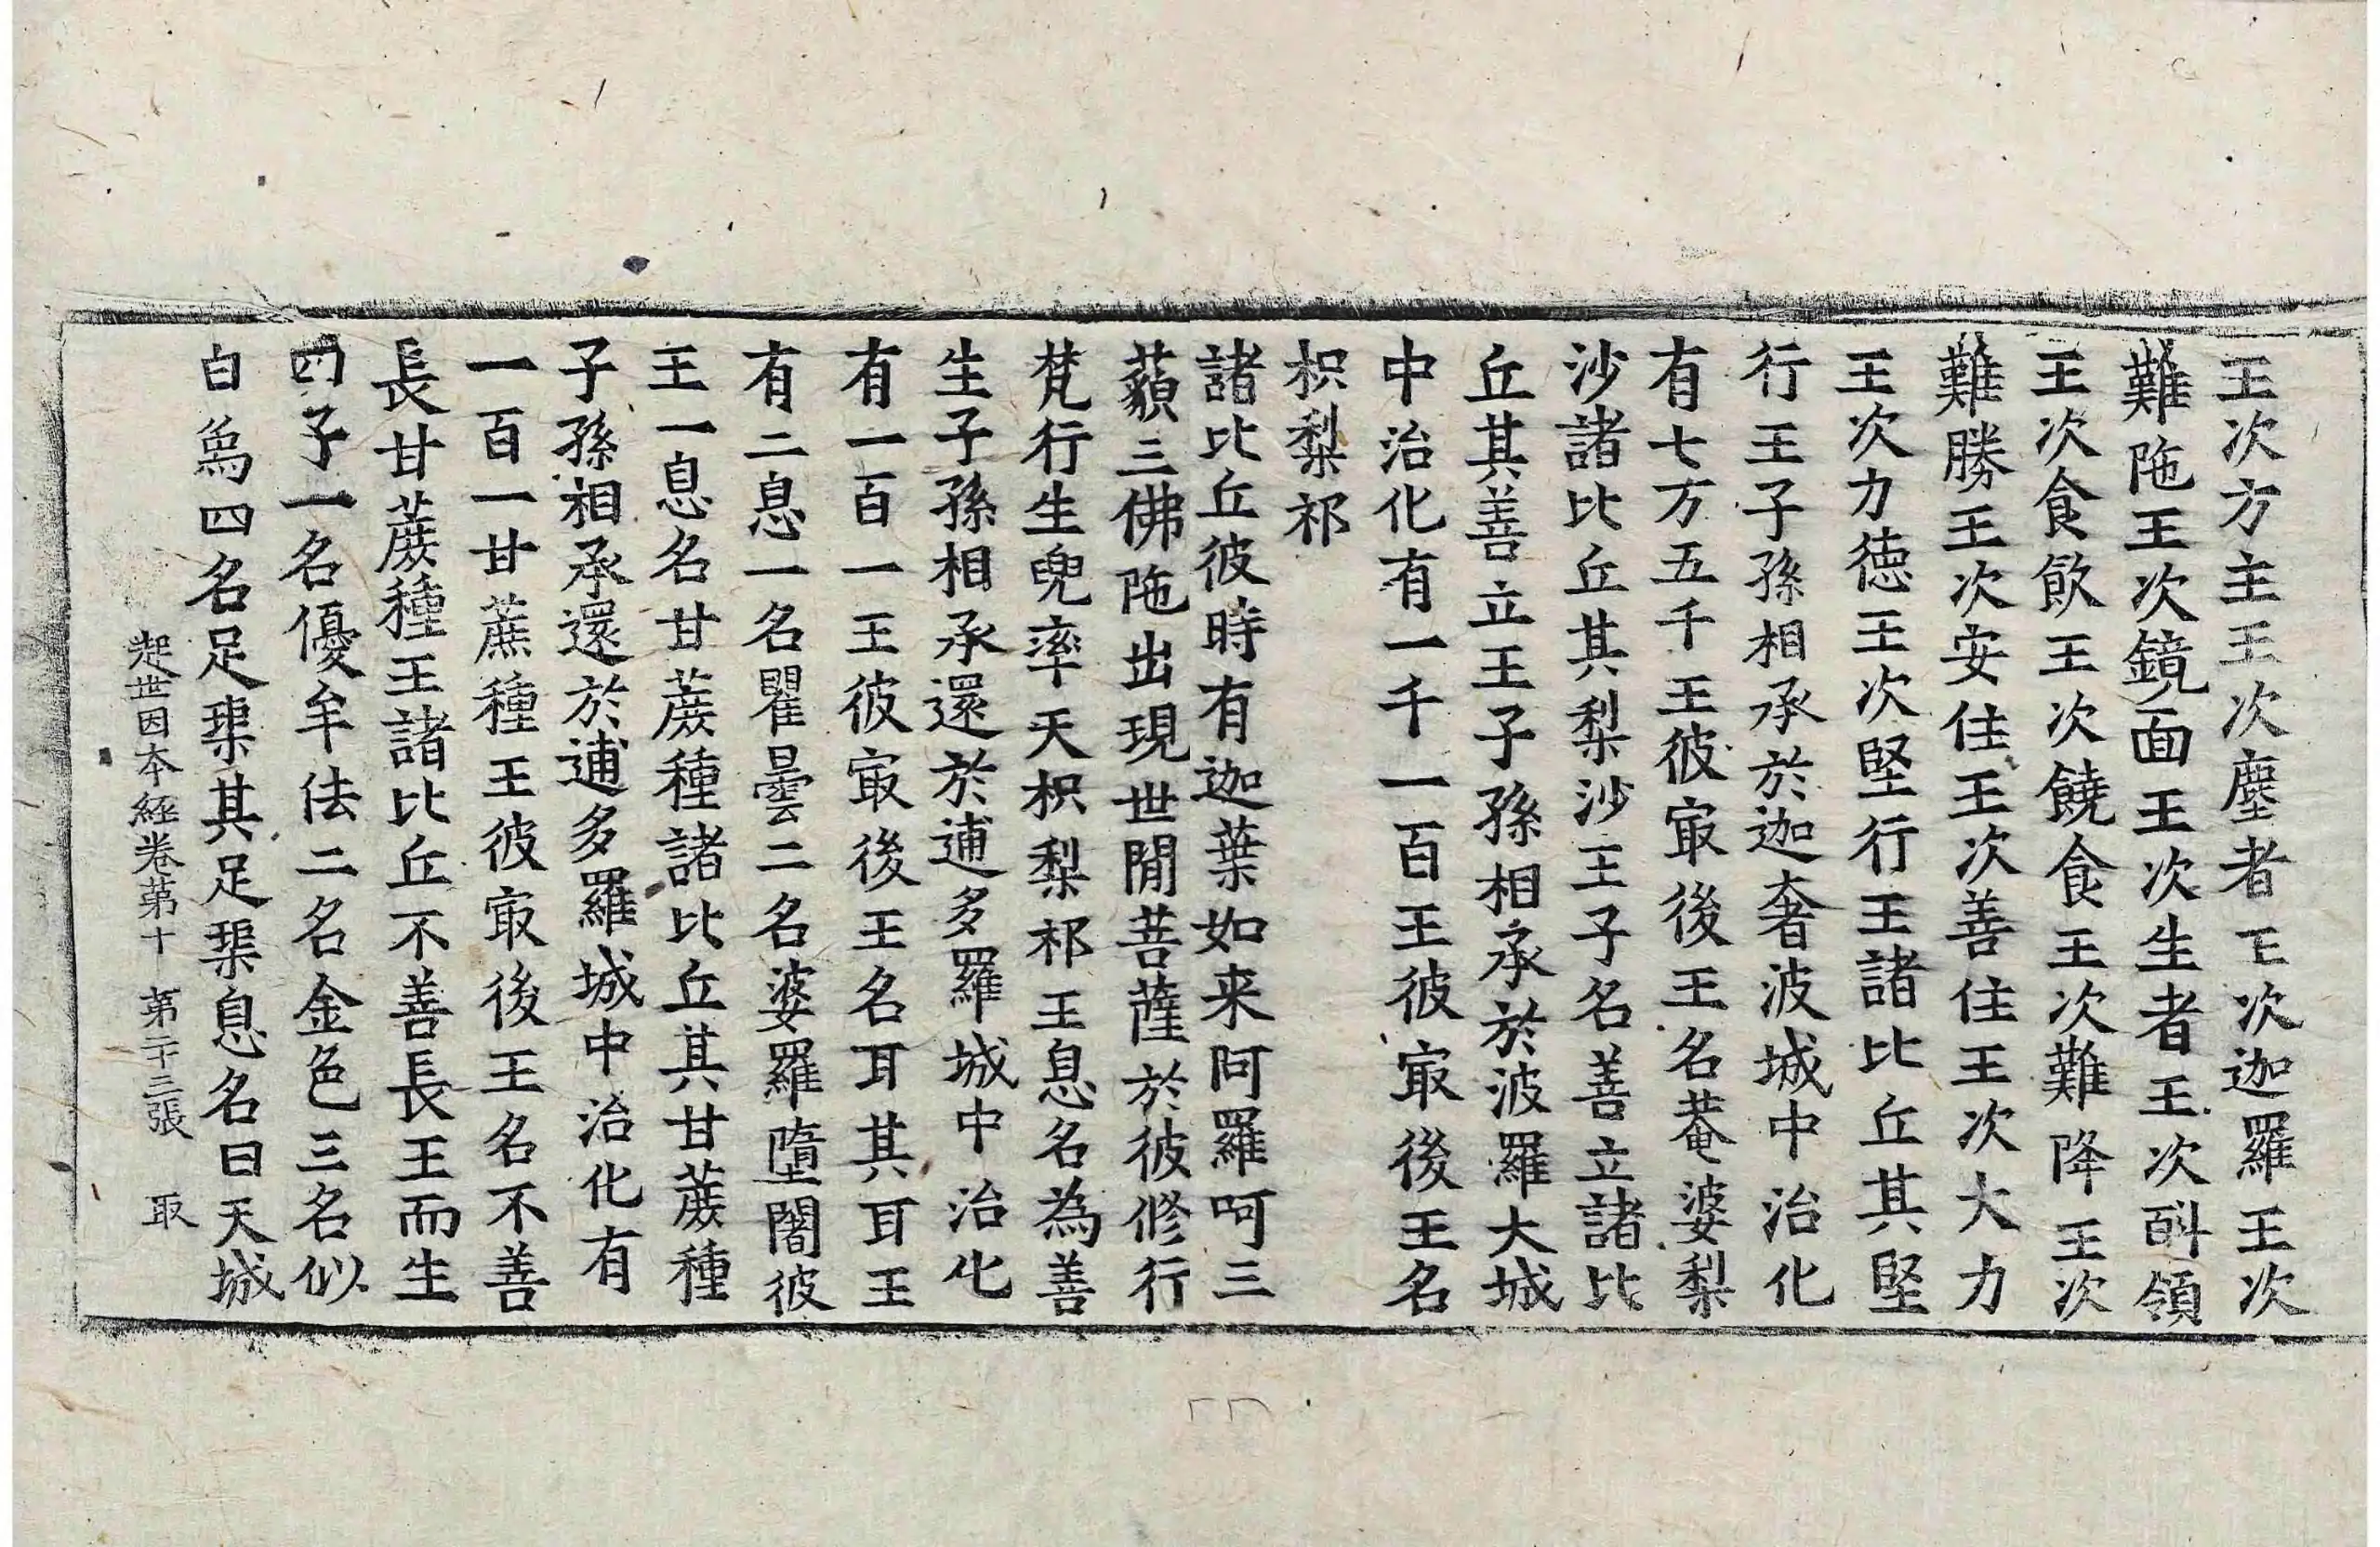 王次方主王次塵者王次迦羅王次
難陁王次鏡面王次生者王次斟領
王次食飲王次饒食王次難降王次
難勝王次安住王次善住王次大力
王次力德王次堅行王諸比丘其堅
行王子孫相承於迦奢波城中治化
有七万五千王彼冣後王名菴婆梨
沙諸比丘其梨沙王子名善立諸比
丘其善立王子孫相承於波羅大城
中治化有一千一百王彼冣後王名
枳梨祁
諸比丘彼時有迦葉如来阿羅呵三
藐三佛陁出現世閒菩薩於彼修行
梵行生兜率天枳梨祁王息名為善
生子孫相承還於逋多羅城中治化
有一百一王彼冣後王名耳其耳王
有二息一名瞿曇二名婆羅墮闍彼
王一息名甘蔗種諸比丘其甘蔗種
子孫相承還於逋多羅城中治化有
一百一甘蔗種王彼冣後王名不善
長甘蔗種王諸比丘不善長王而生
四子一名優牟佉二名金色三名似
白為四名足渠其足渠息名曰天城
起世因本經卷第十 第二十三張 取